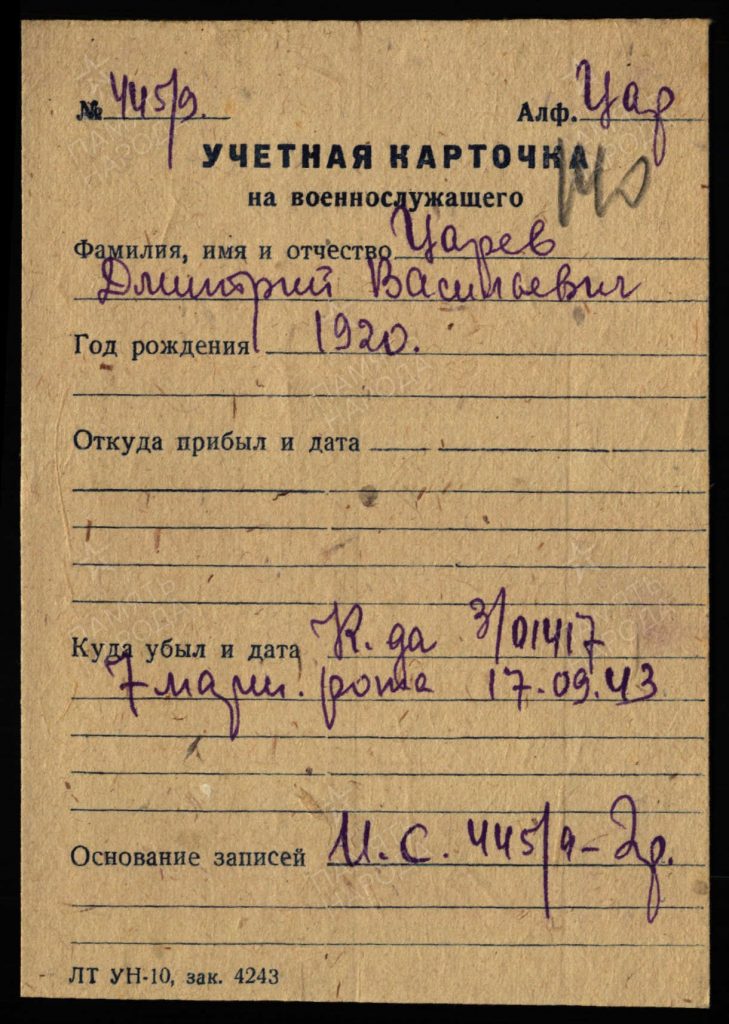 № 445/9. Алф. Цар
УЧЕТНАЯ КАРТОЧКА
140
на военнослужащего
Фамилия, имя и отчество Царев
Дмитрий Васильевич
Год рождения 1920.
Откуда прибыл и дата
Куда убыл и дата К-да 3/01417
7 марш. рота 17.09.43
Основание записей И.С. 445/9-2р.
ЛТ УН-10, зак. 4243
ПАМЯТЬ
НАРОДА